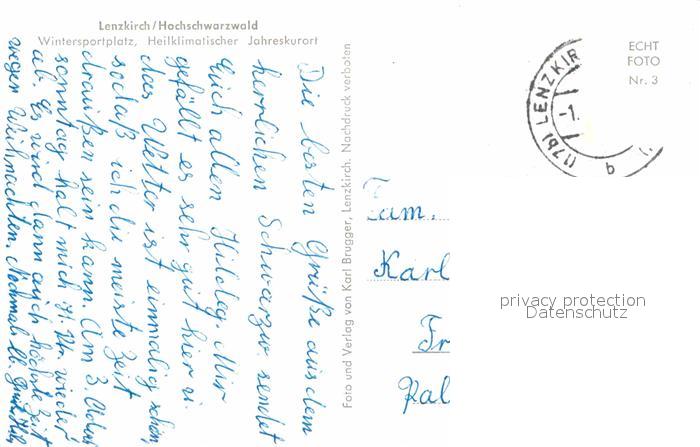 Lenzkirch/Hochschwarzwald
Wintersportplatz, Heilklimatischer Jahreskurort
Die besten Grüße aus dem
herrlichen Schwarzw. sendet
Euch allen Hildeg. Mir
gefällt es sehr gut hier u.
das Wetter ist einmalig schön,
sodaß ich die meiste Zeit
draußen sein kann. Am 3. Advent
sonntag halt mich wieder
ab. Es wird dann auch höchste Zeit
wegen Weihnachten. Nochmal
Foto und Verlag von Karl Brugger, Lenzkirch. Nachdruck verboten
ECHT
FOTO
Nr. 3
(17b) LENZKIR
-1.
Fam.
Karl
Fr
Kal
privacy protection
Datenschutz